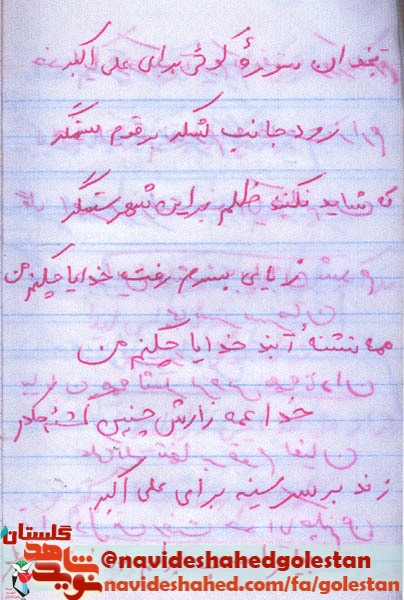 بخوان سورهٔ کوثر برای علی اکبر
رود جانب لشکر بر قوم ستمگر
که شاید نکند ظلم بر این شهر ستمگر
ز یالی پسرم رفت خدایا چکنم من
همه تشنهٔ آبند خدایا چکنم من
خدا عمه زارش چنین
زند بر سر سینه برای علی اکبر
گلستان
نوید شاهد
@navideshahedgolestan
navideshahed.com/fa/golestan